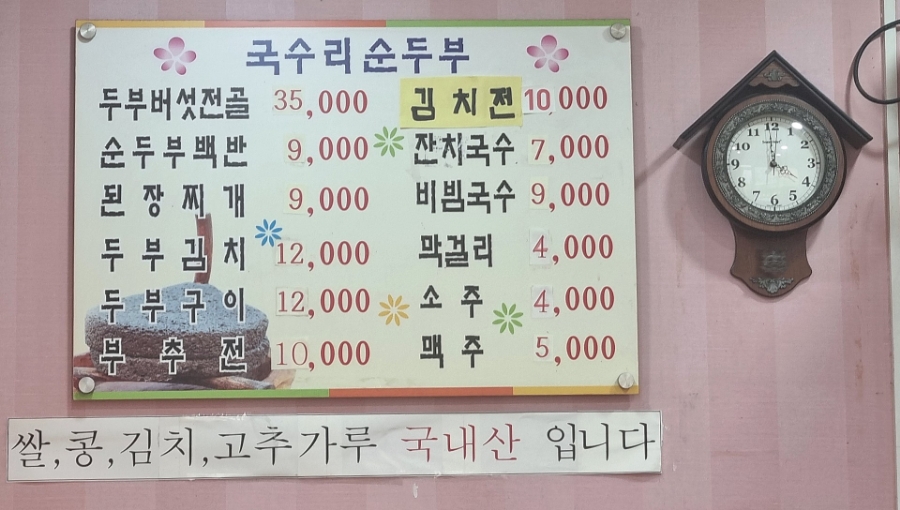 국수리순두부
두부버섯전골 35,000
순두부백반 9,000
된장찌개 9,000
두부김치 12,000
두부구이 12,000
부추전 10,000
김치전 10,000
잔치국수 7,000
비빔국수 9,000
막걸리 4,000
소주 4,000
맥주 5,000
쌀,콩,김치,고추가루 국내산 입니다
12
1
2
3
4
5
6
7
8
9
10
11